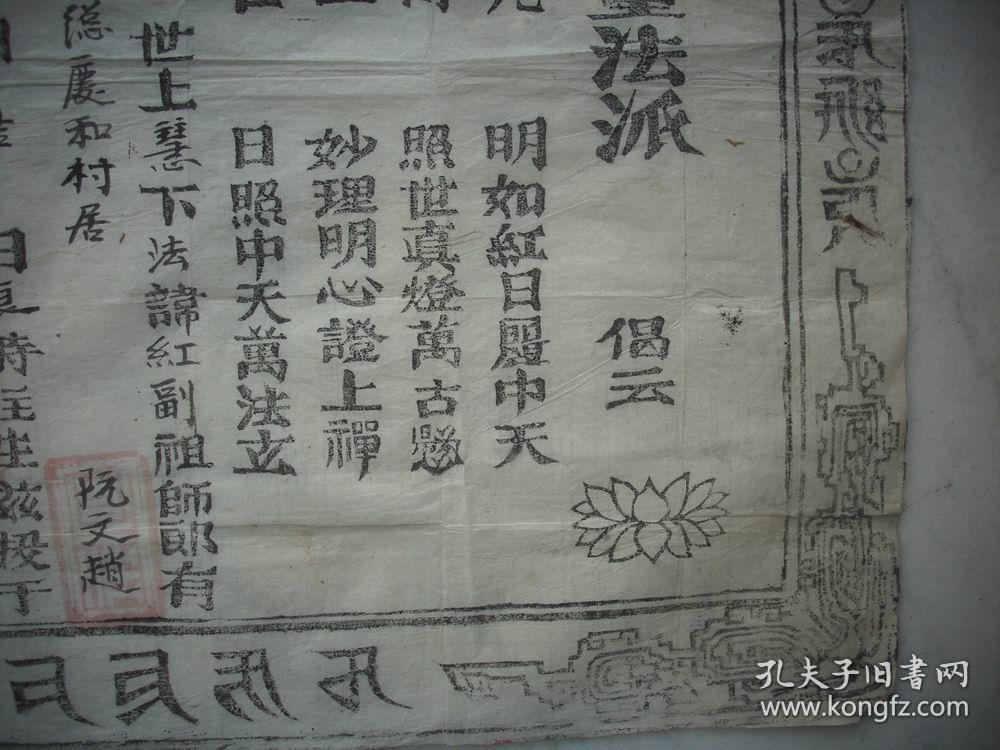 法派
偈云
明如紅日麗中天
照世真燈萬古懸
妙理明心證上禪
日照中天萬法玄
世上慧下法諱紅副祖師郎有
總慶和村居
阮文趙
日良時注生茲投于
孔夫子旧書网
www.kongfz.com